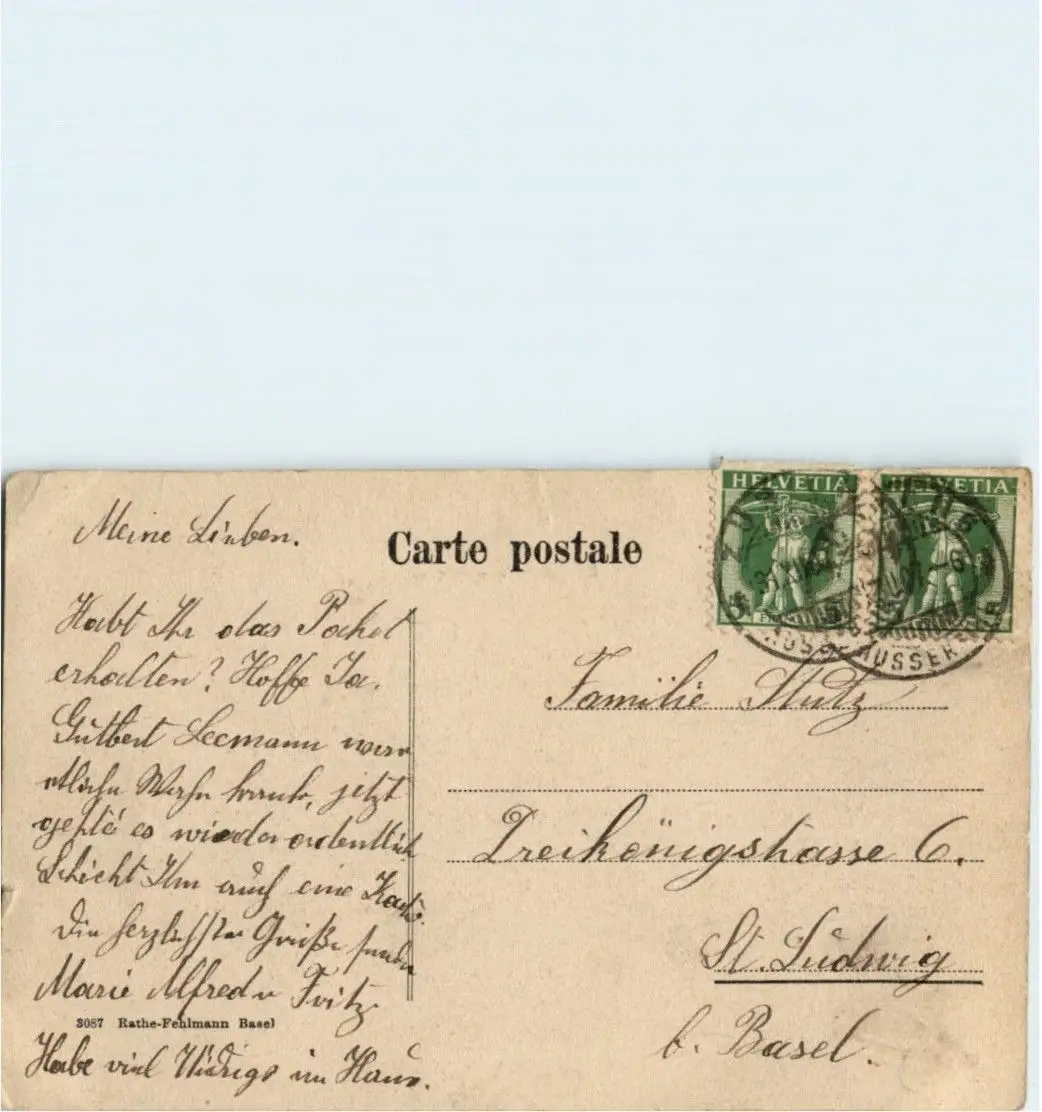 Carte postale
HELVETIA HELVETIA
Meine Lieben.
Habt Ihr das Packet
erhalten? Hoffe Ja.
Leemann war
etliche krank, jetzt
geht's es wieder ordentlich
Schickt Ihm auch eine Karte.
Die herzlichsten Grüße senden
Marie Alfred u Fritz
3087 Rathe-Fehlmann Basel
Habe viel im Haus.
Familie Stutz
Dreikönigstrasse 6.
St. Ludwig
b. Basel.